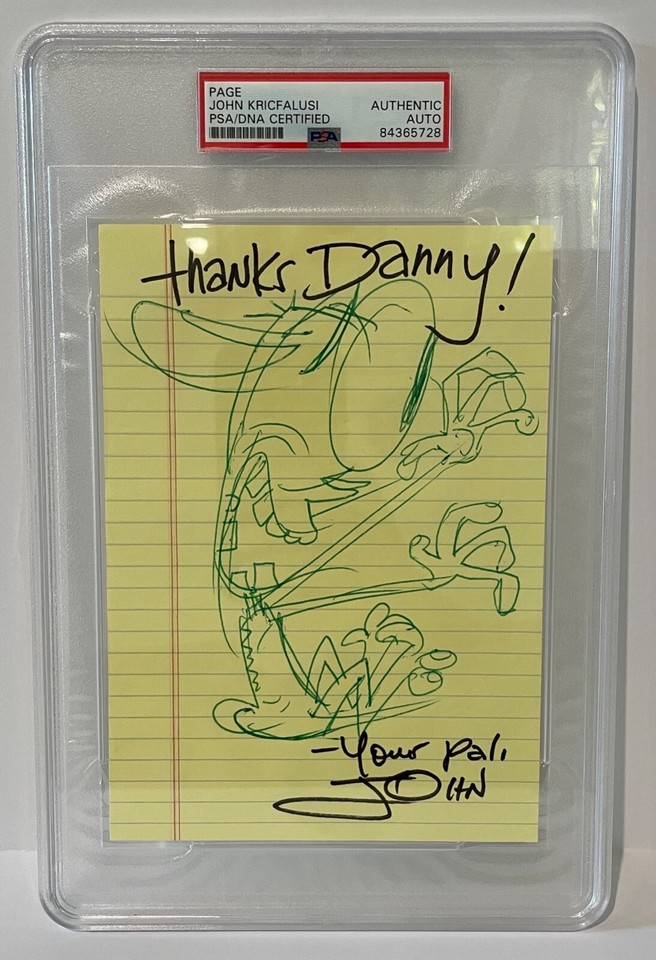 PAGE
JOHN KRICFALUSI AUTHENTIC
PSA/DNA CERTIFIED AUTO
PSA 84365728
thanks Danny!
-Your pal,
JOHN